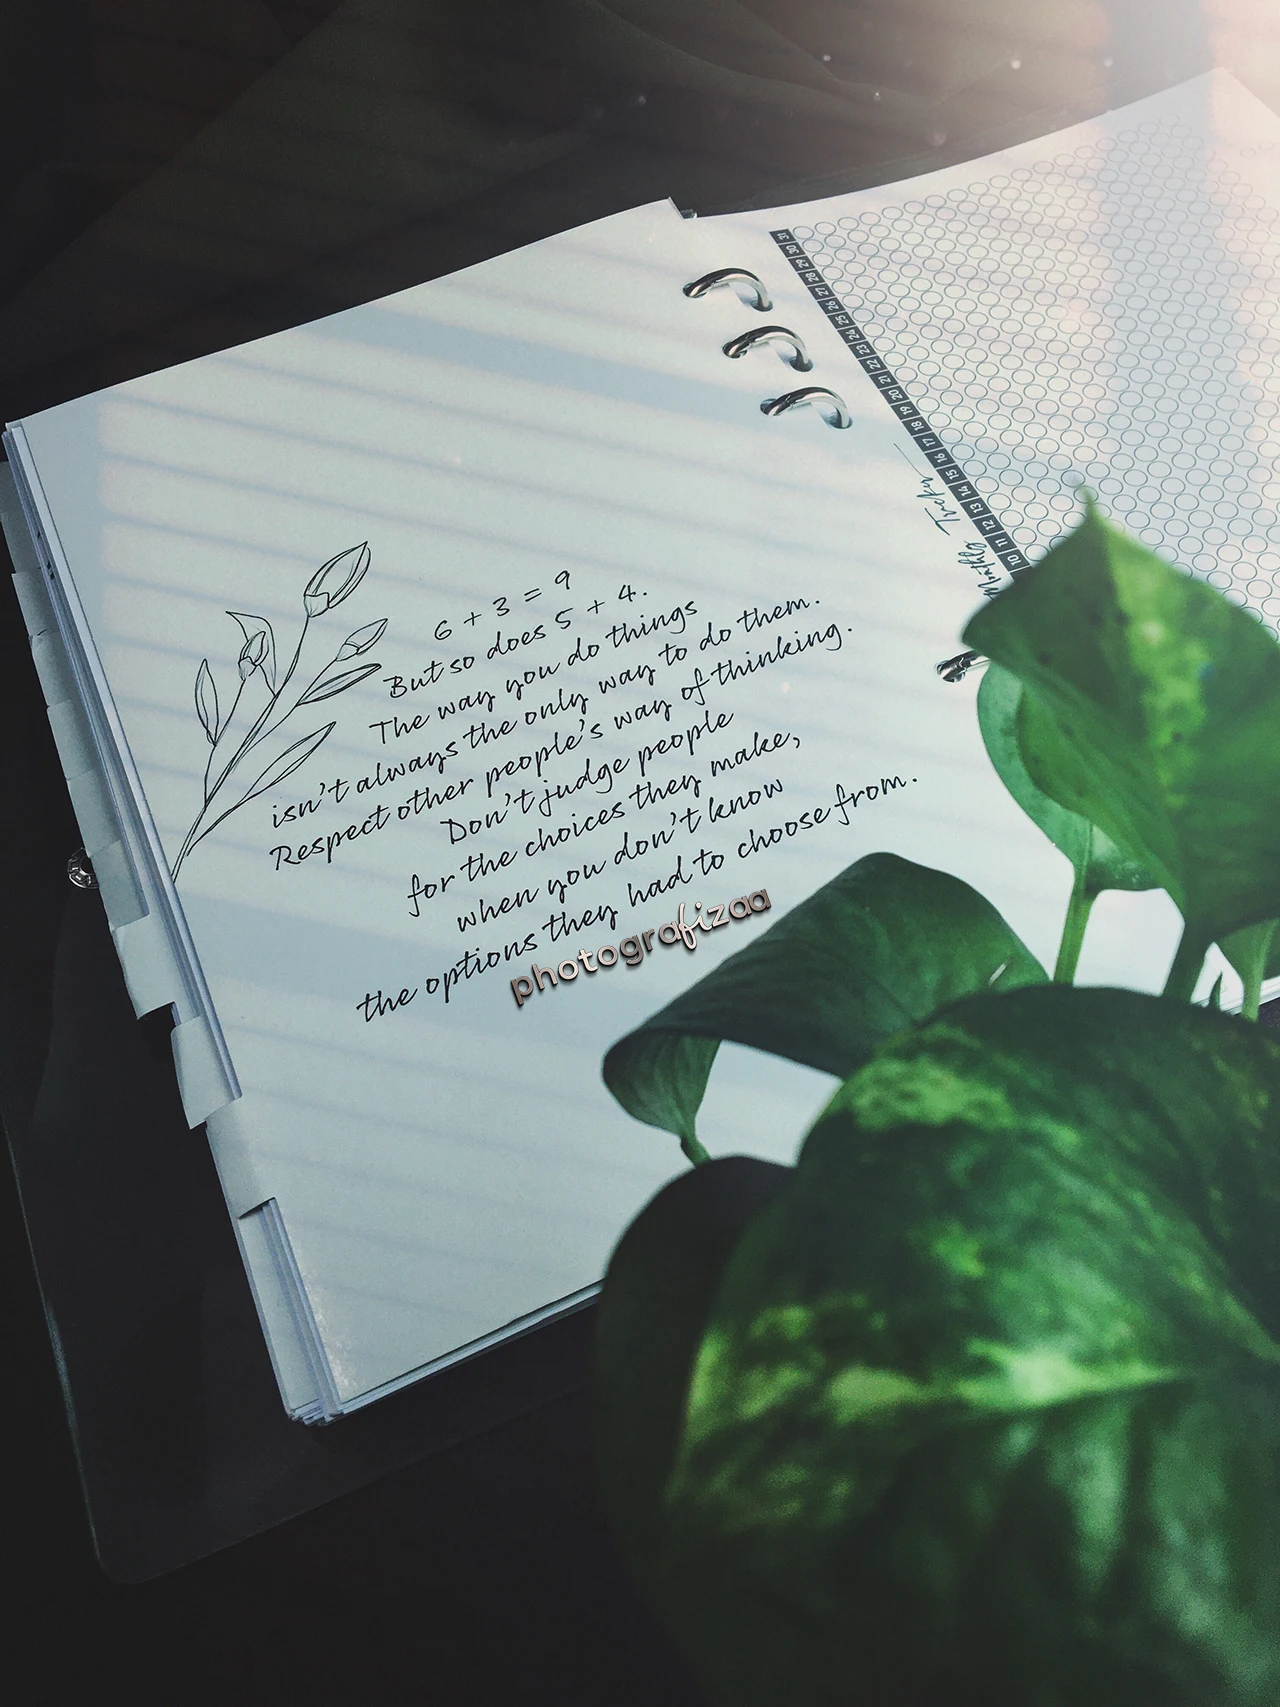 6 + 3 = 9
But so does 5 + 4.
The way you do things
isn't always the only way to do them.
Respect other people's way of thinking.
Don't judge people
for the choices they make,
when you don't know
the options they had to choose from.
photografizaa
Monthly Tracker
10 11 12 13 14 15 16 17 18 19 20 21 22 23 24 25 26 27 28 29 30 31